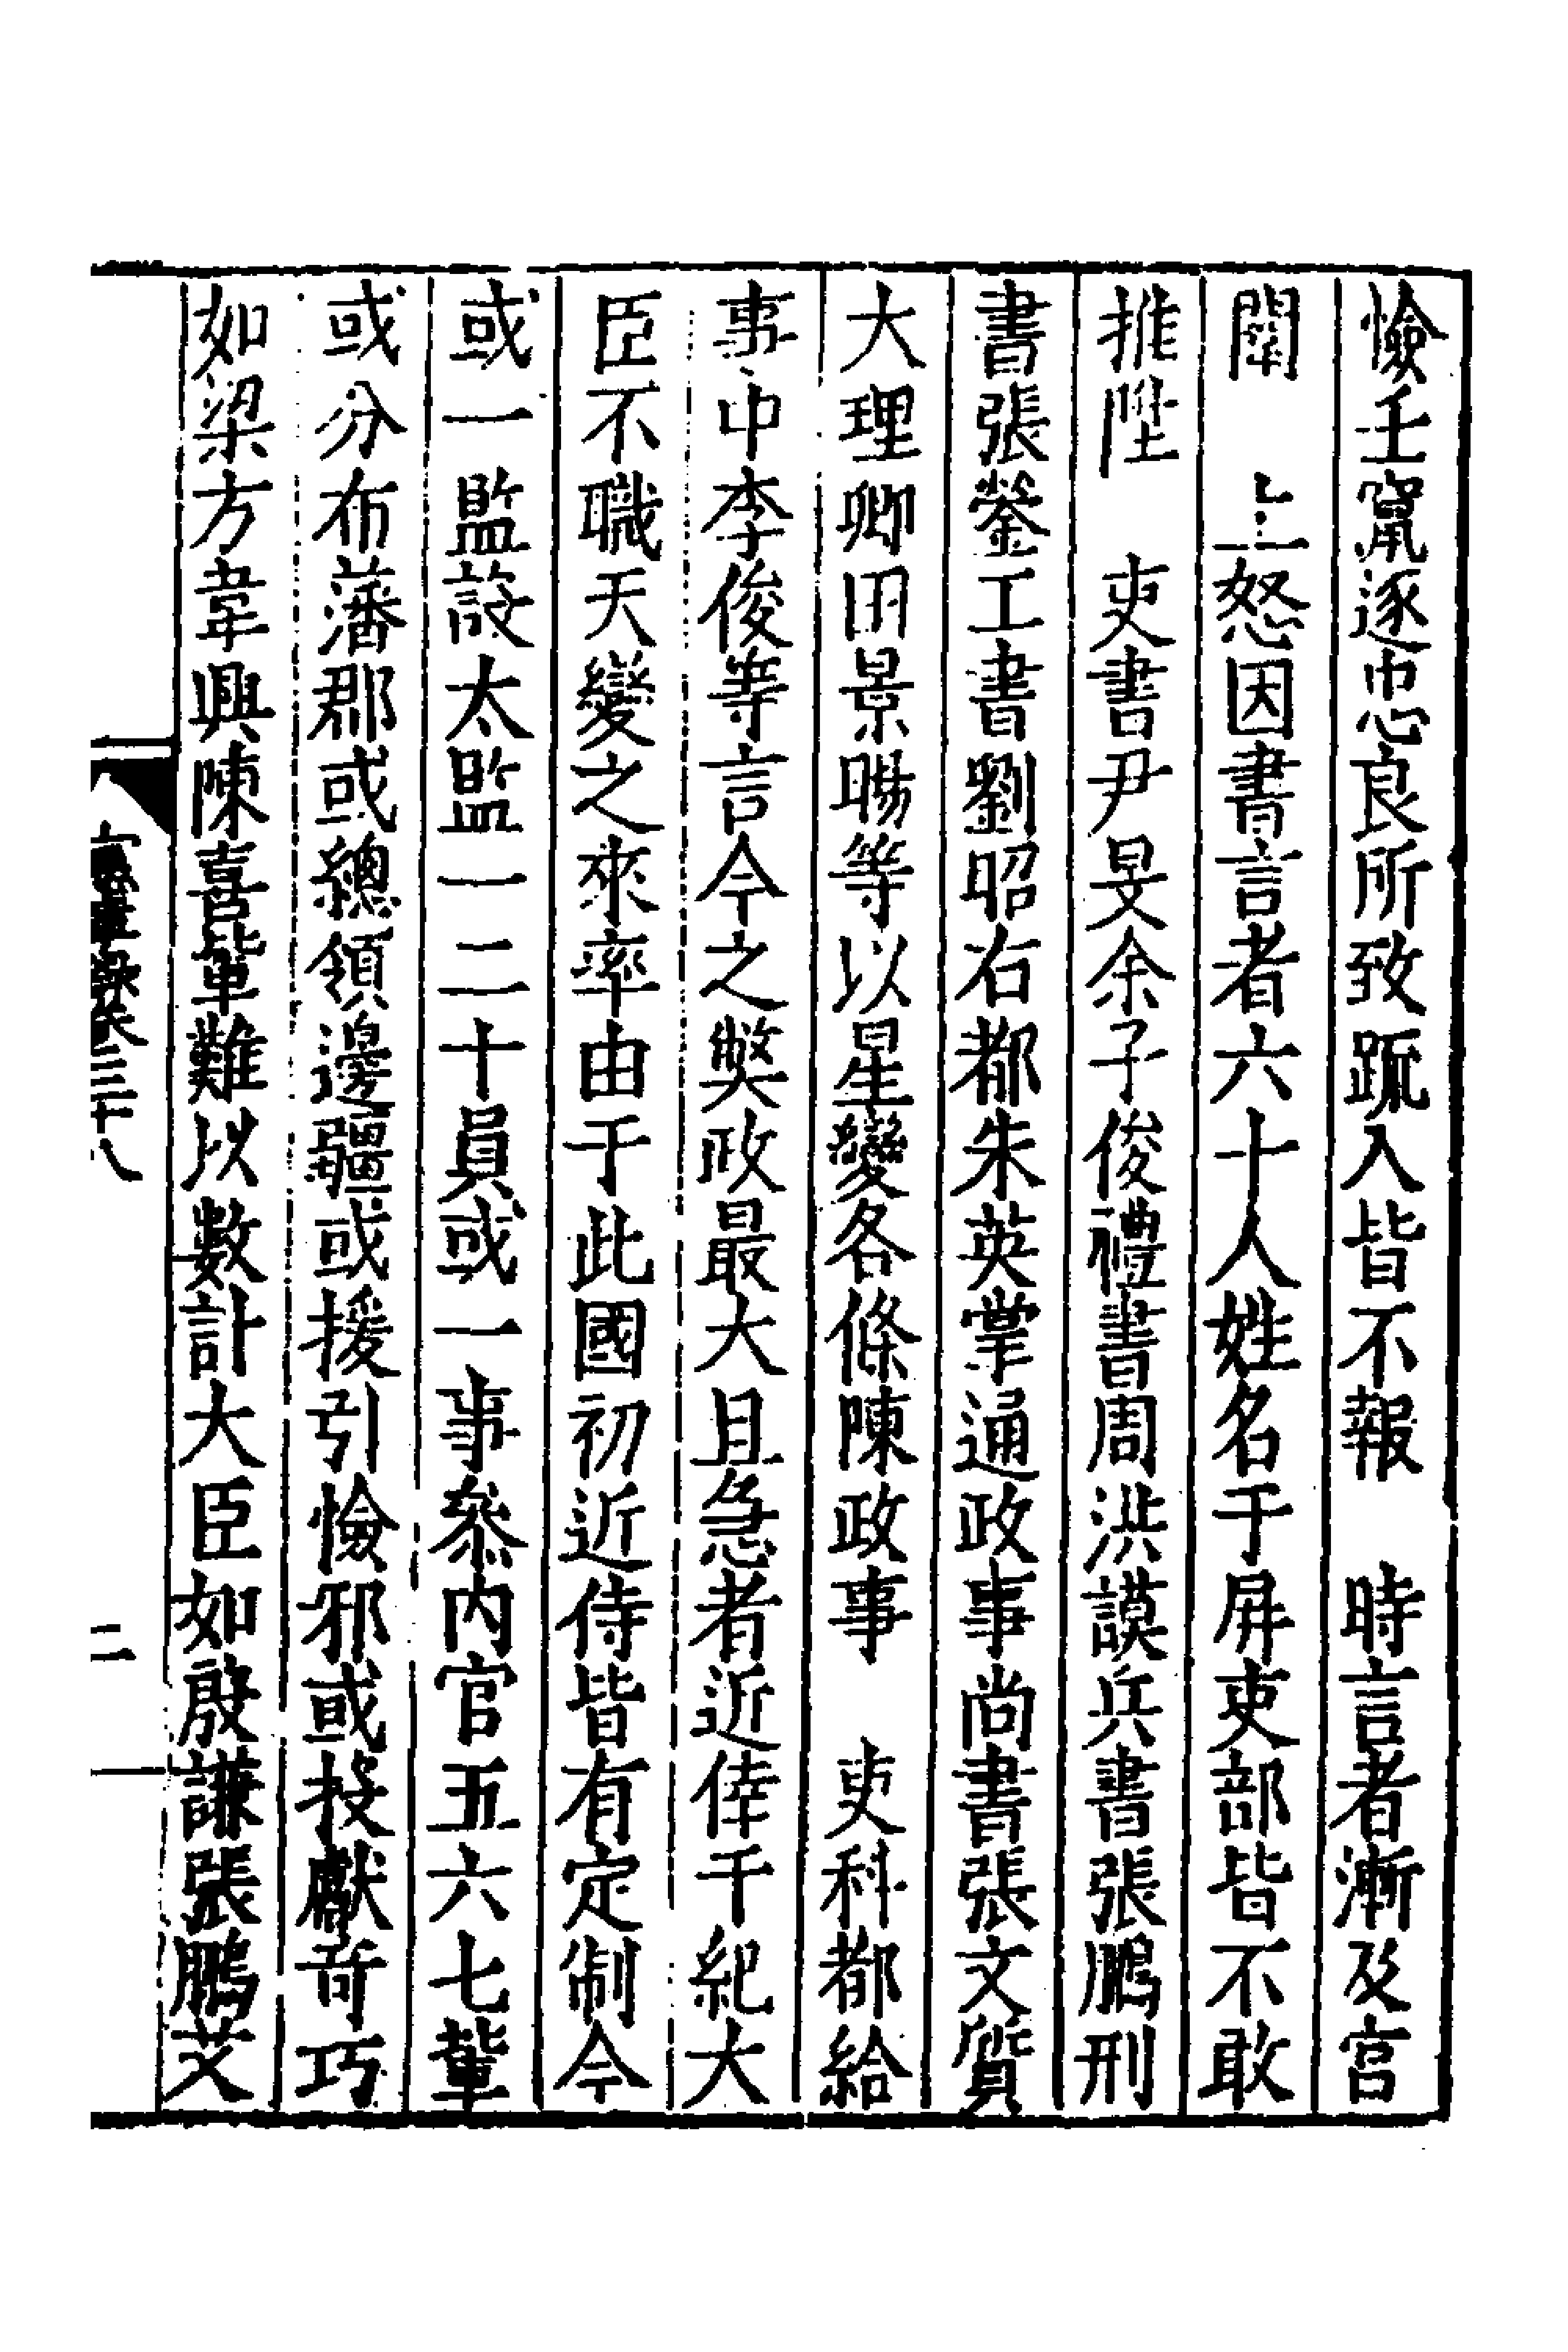 憸壬竄逐忠良所致䟽入皆不報　時言者漸及宫
闈　上怒因書言者六十人姓名于屏吏部皆不敢
推陞　吏書尹旻余子俊禮書周洪謨兵書張鵬刑
書張鎣工書劉昭右都朱英掌通政事尚書張文質
大理卿田景暘等以星變各條陳政事　吏科都給
事中李俊等言今之弊政最大且急者近倖干紀大
臣不職天變之來率由于此國初近侍皆有定制今
或一監設太監一二十員或一事叅内官五六七輩
或分布藩郡或總領邊疆或援引憸邪或投獻竒巧
如梁方韋興陳喜輩難以數計大臣如殷謙張鵬艾
三十八
二